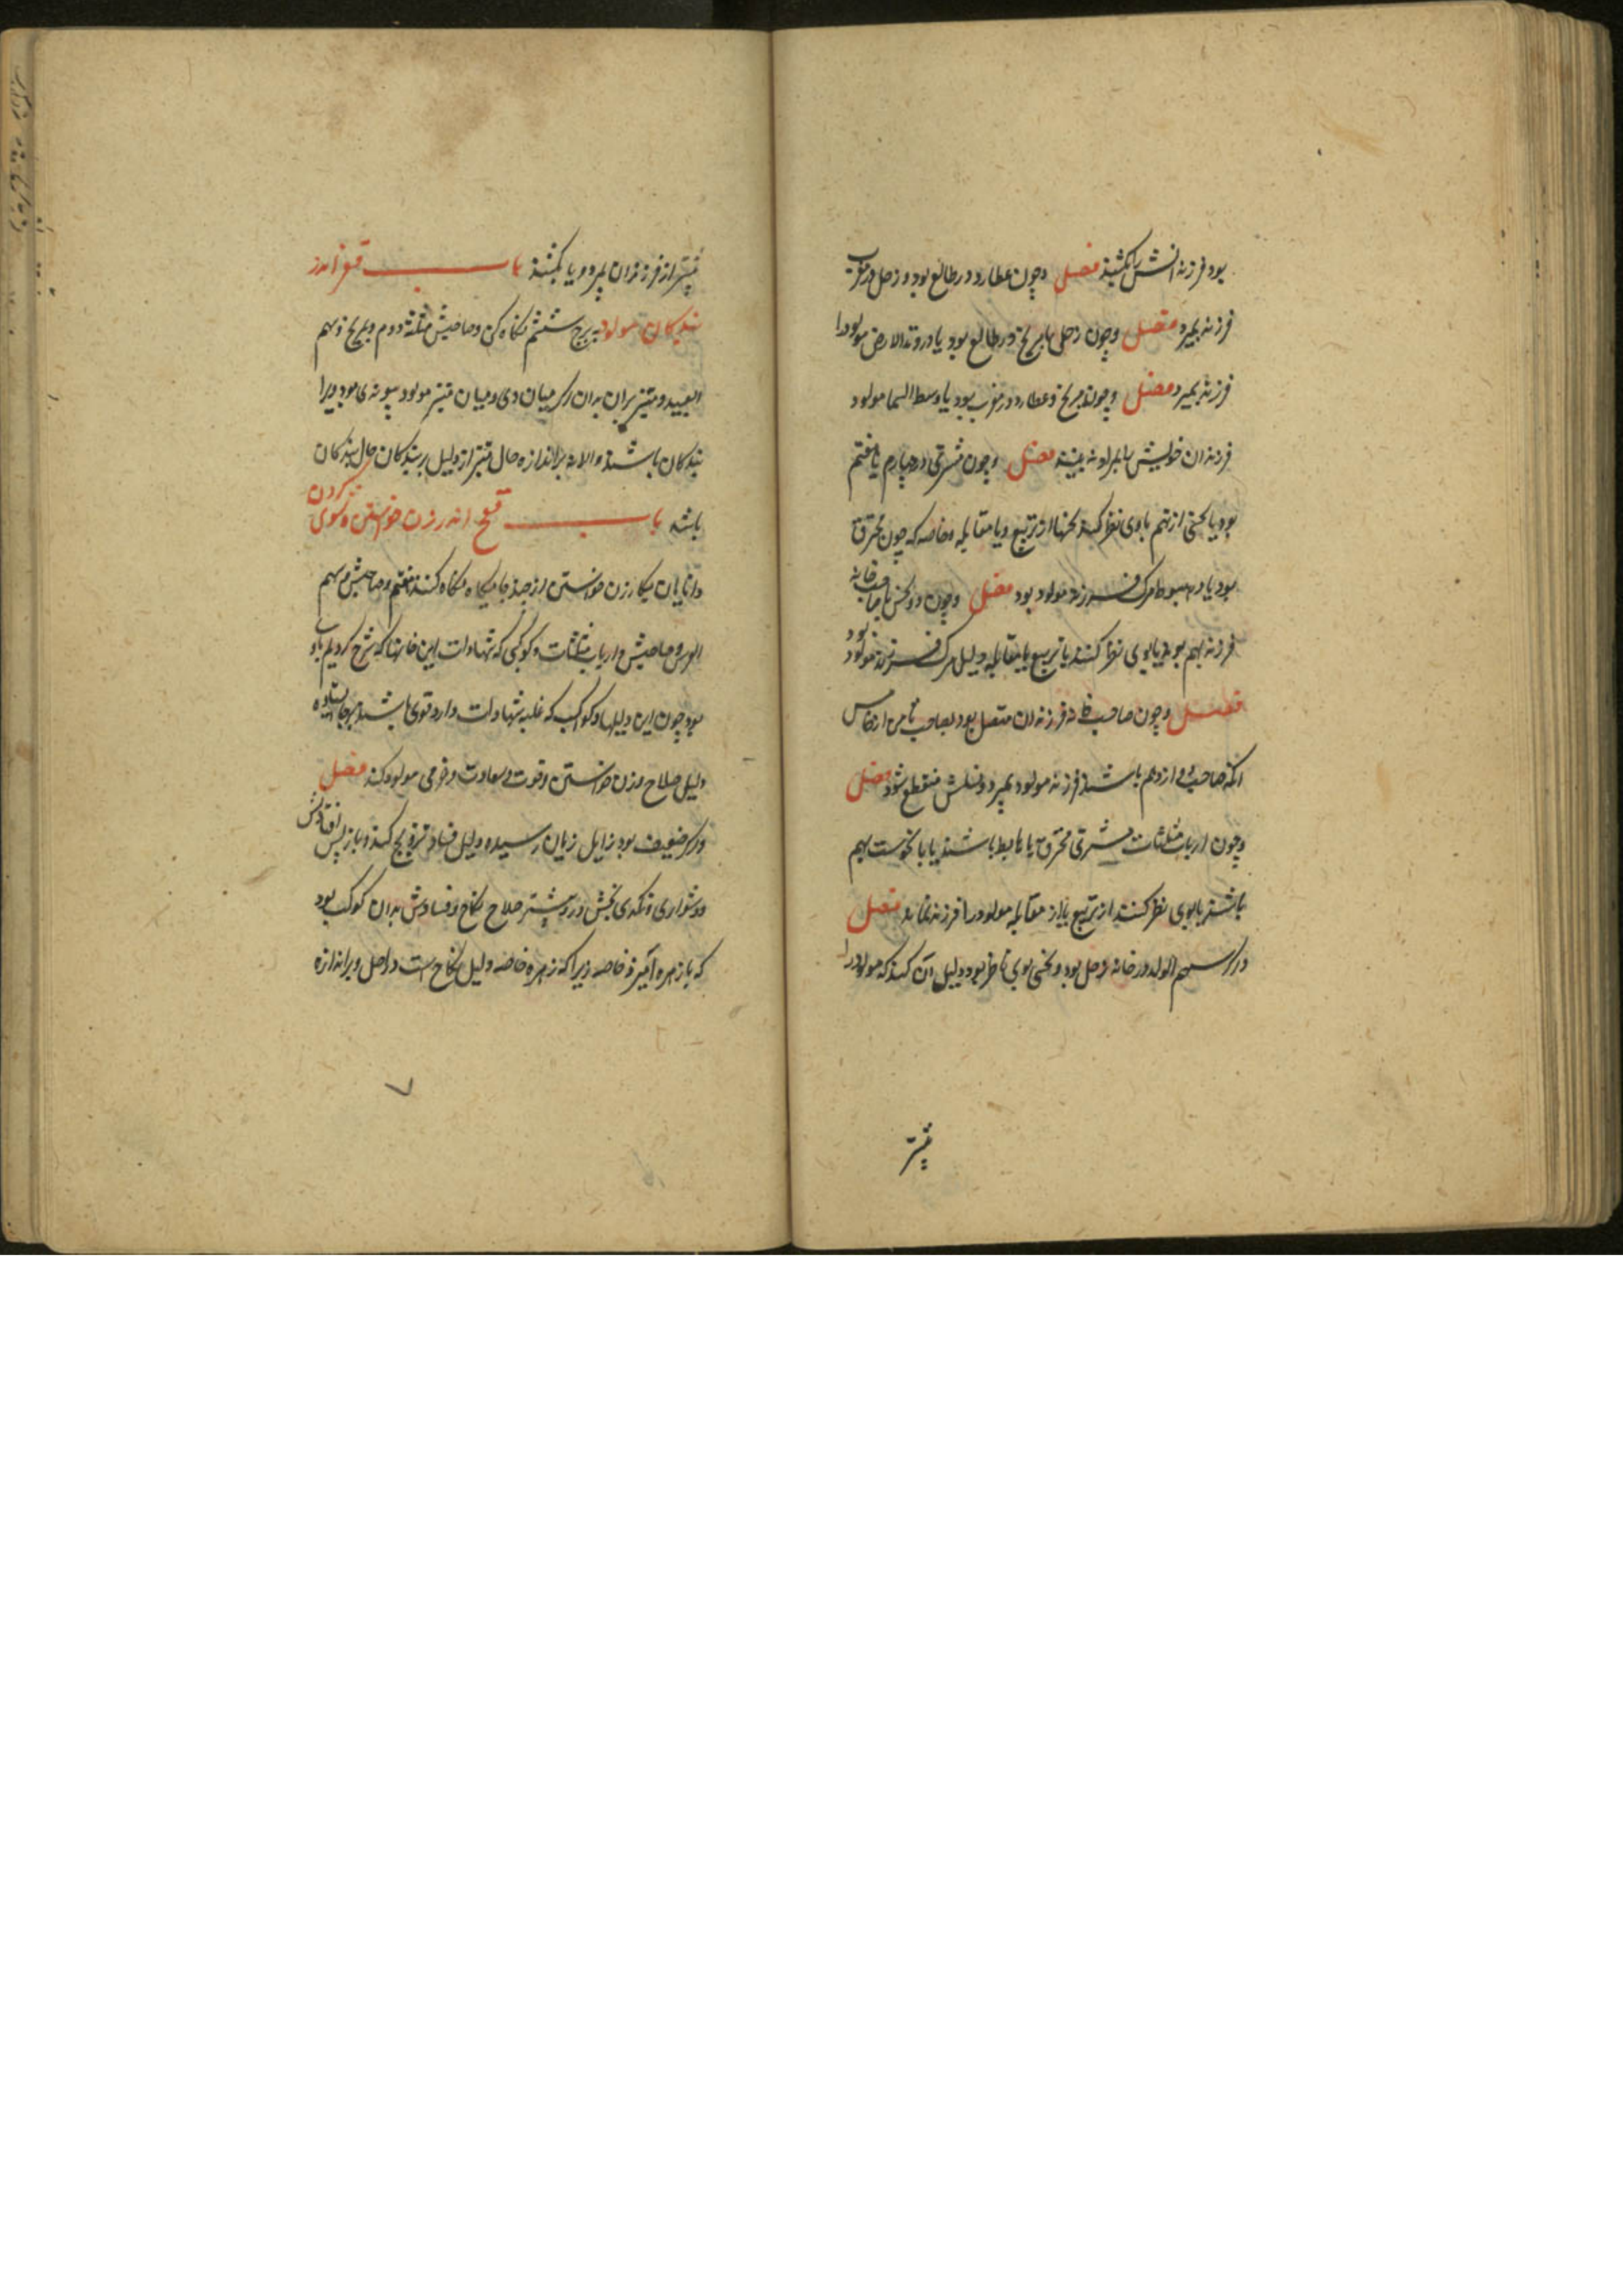 بود فرزندانش را بکشند فصل و چون عطارد در طالع بود و زحل در مغرب
فرزند بمیرد فصل و چون زحل با مریخ در طالع بود یا در وتد الارض مولود را
فرزند بمیرد فصل و چون مریخ و عطارد در مغرب بود یا وسط السما مولود
فرزندان خویش را بمراد نه بیند فصل و چون مشتری در چهارم یا هفتم
بود یا نحسی از نهم باوی نظر کند نحسها از تربیع و یا مقابله و خاصه که چون محترق
بود یا در هبوط مرک فرزند مولود بود فصل و چون دو نحس با صاحب خانه
فرزند بهم بود یا بوی نظر کنند یا تربیع یا مقابله دلیل مرک فرزند مولود بود
فصل و چون صاحب خانه فرزندان متصل بود بصاحب ثامن از خامس
انکه صاحب دوازدهم باشند فرزند مولود بمیرد و نسلش منقطع شود فصل
و چون ارباب مثلثات مشتری محترق یا هابط باشند یا با نحوست بهم
باشند یا بوی نظر کنند از تربیع یا از مقابله مولود را فرزند نماند فصل
و اکر سهم الولد در خانه زحل بود و نحسی بوی ناظر بود دلیل آن کند که مولود را
بیشتر
بیشتر از فرزندان بمیرد و یا بکشند باب قعز اندر
بندکان مولود به برج ششم نکاه کن و صاحبش مثلثه دوم و بمریخ و سهم
العبید و مبتز بران بدان اکر میان وی و میان مبتز مولود پیوندی بود ویرا
بندکان باشند و الا نه بر اندازه حال مبتز از دلیل بر بندکان حال بندکان
باشد باب قعح اندر زن خواستن و شوی کردن
دانایان بکار زن خواستن از چند جایکاه نکاه کنند هفتم و صاحبش و سهم
العرس و صاحبش و ارباب مثلثات و کوکبی که شهادات این خانها که شرح کردیم باو
بود چون این دلیلها و کواکب که غلبه شهادات دارد قوی باشند بهر جا ایستاده
دلیل صلاح و زن خواستن و قوت و سعادت و خرمی مولود کند فصل
و اکر ضعیف بود زایل زیان رسیده دلیل فساد تزویج کند و باز پس افتادنش
و دشواری و نکدی بخش در و بیشتر صلاح نکاح و فسادش بدان کوکب بود
که با زهره آمیزد خاصه زیرا که زهره خاصه دلیل نکاح است در اصل و بر اندازه